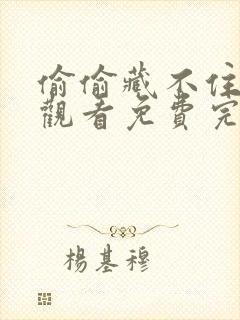 偷偷藏不住
觀看免費完
楊基穆